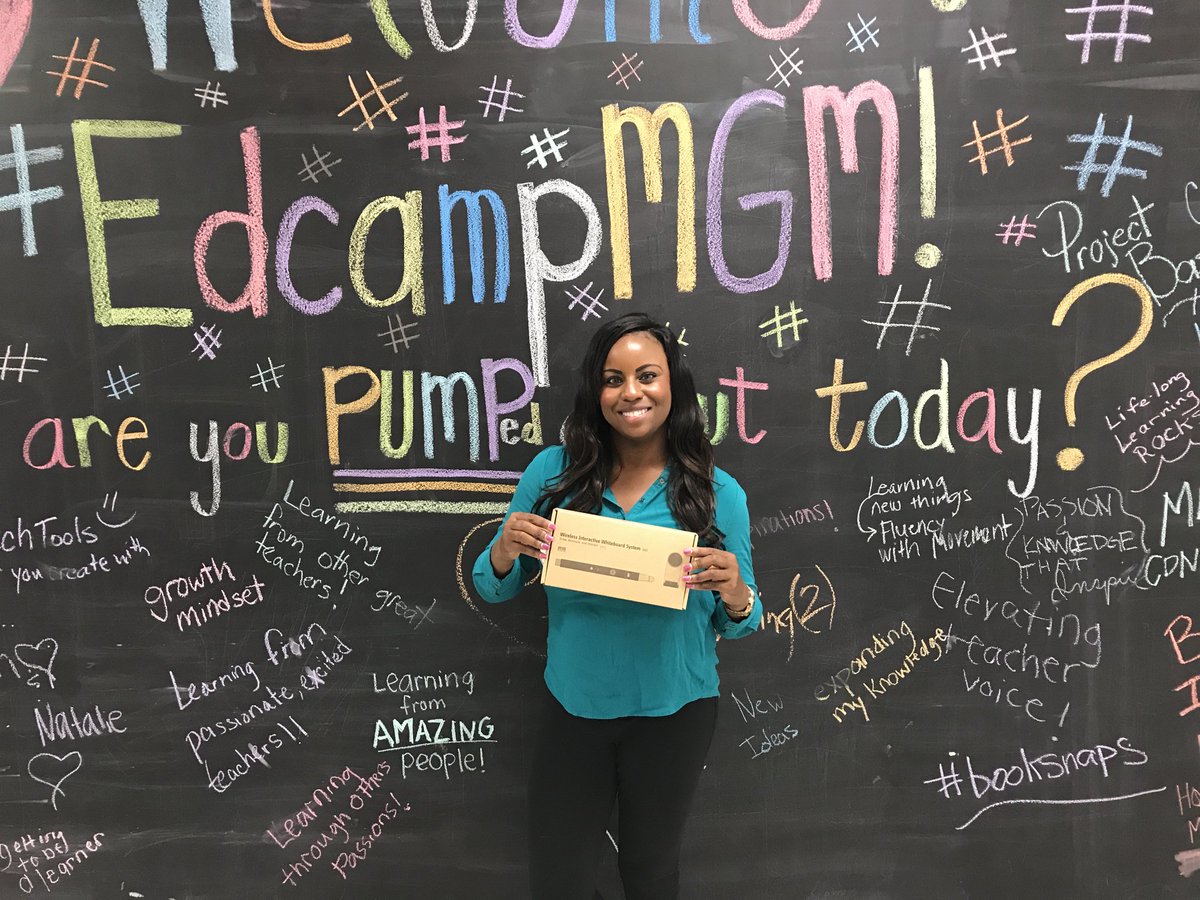 Welcome
#EdcampMGM!
are you PUMPed about today?
Project
Life-long
Learning
ROCKS
Learning
new things
Fluency
with Movement
PASSION
&
KNOWLEDGE
THAT
Inspire
Learning
from other
teachers!
great
you create with
growth
mindset
Wireless Interactive Whiteboard System
Elevating
teacher
voice!
expanding
my knowledge
Learning from
passionate, excited
teachers!!
Learning
from
AMAZING
people!
Natalie
New
Ideas
#booksnaps
Learning
through others
Passions!
Getting
to be a
learner